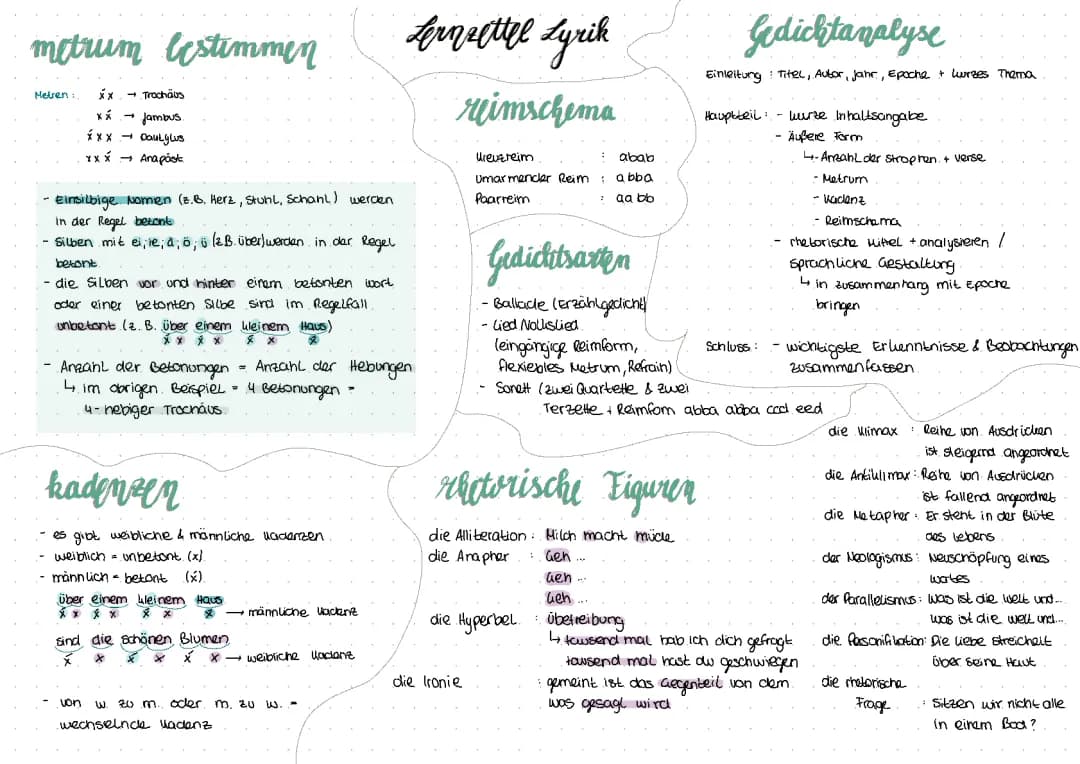 Lernzettel Lyrik
metrum bestimmen
Metren: x́ x → Trochäus
x x́ → Jambus
x́ x x → Daktylus
x x x́ → Anapäst
- Einsilbige Nomen (z.B. Herz, Stuhl, Schahl) werden
in der Regel betont
- Silben mit ei, ie, ä, ö, ü (z.B. über) werden in der Regel
betont.
- die Silben vor und hinter einem betonten Wort
oder einer betonten Silbe sind im Regelfall
unbetont (z. B. über einem kleinem Haus)
x́ x x́ x x́ x x́
- Anzahl der Betonungen = Anzahl der Hebungen
↳ im obrigen Beispiel = 4 Betonungen =
4-hebiger Trochäus
reimschema
Kreuzreim : abab
Umarmender Reim : abba
Paarreim : aabb
Gedichtsarten
- Ballade (Erzählgedicht)
- Lied / Volkslied
(eingängige Reimform,
flexiebles Metrum, Refrain)
- Sonett (zwei Quartette & zwei
Terzette + Reimform abba abba ccd eed
Gedichtanalyse
Einleitung : Titel, Autor, Jahr, Epoche + kurzes Thema
Hauptteil : - kurze Inhaltsangabe
- Äußere Form
↳ - Anzahl der Strophen + Verse
- Metrum
- Kadenz
- Reimschema
- rhetorische Mittel + analysieren /
sprachliche Gestaltung
↳ in zusammenhang mit Epoche
bringen
Schluss : - wichtigste Erkenntnisse & Beobachtungen
zusammenfassen
kadenzen
- es gibt weibliche & männliche Kadenzen
- weiblich = unbetont (x)
- männlich = betont (x́)
über einem kleinem Haus
x́ x x́ x x́ x x́ → männliche Kadenz
sind die schönen Blumen
x́ x x́ x x́ x → weibliche Kadenz
- von w. zu m. oder m. zu w. =
wechselnde Kadenz
rhetorische Figuren
die Alliteration : Milch macht müde
die Anapher : Geh ...
Geh ...
Geh ...
die Hyperbel : übetreibung
↳ tausend mal hab ich dich gefragt
tausend mal hast du geschwiegen
die Ironie : gemeint ist das Gegenteil von dem
was gesagt wird
die Klimax : Reihe von Ausdrücken
ist steigernd angeordnet
die Antiklimax : Reihe von Ausdrücken
ist fallend angeordnet
die Metapher : Er steht in der Blüte
des Lebens
der Neologismus : Neuschöpfung eines
Wortes
der Parallelismus : Was ist die Welt und...
Was ist die Welt und...
die Personifikation : Die Liebe streichelt
über seine Haut
die rhetorische
Frage : Sitzen wir nicht alle
in einem Boot?